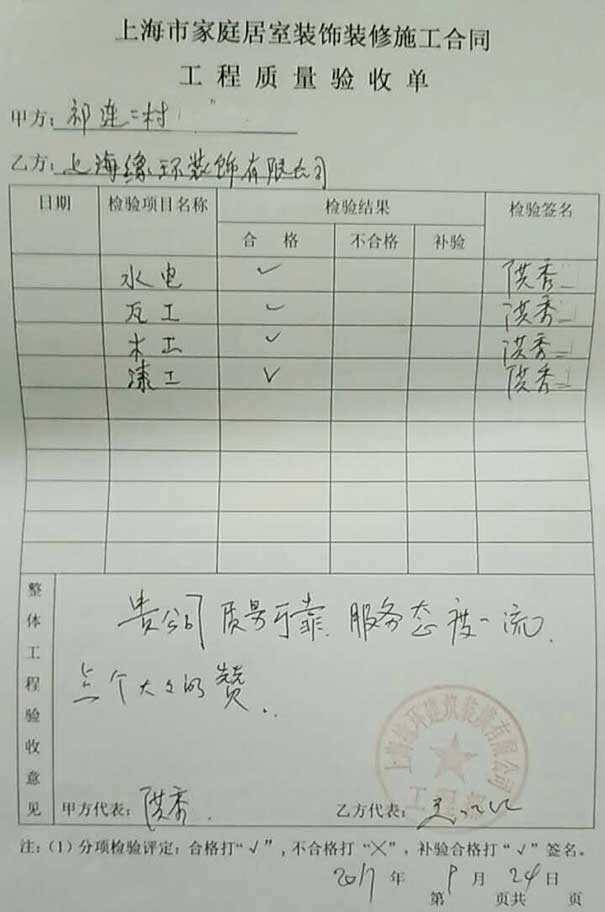 上海市家庭居室装饰装修施工合同
工程质量验收单
甲方：祁连二村
乙方：上海缘环装饰有限公司
日期 检验项目名称 检验结果 检验签名
合格 不合格 补验
水电 ✓ 洪秀
瓦工 ✓ 洪秀
木工 ✓ 洪秀
漆工 ✓ 洪秀
整体工程验收意见
贵公司质量可靠.服务态度一流.
点个大大的赞..
上海缘环建筑装潢有限公司
甲方代表：洪秀. 乙方代表：
注：(1)分项检验评定：合格打“√”,不合格打“╳”，补验合格打“√”签名。
2017年9月24日
第 页共 页